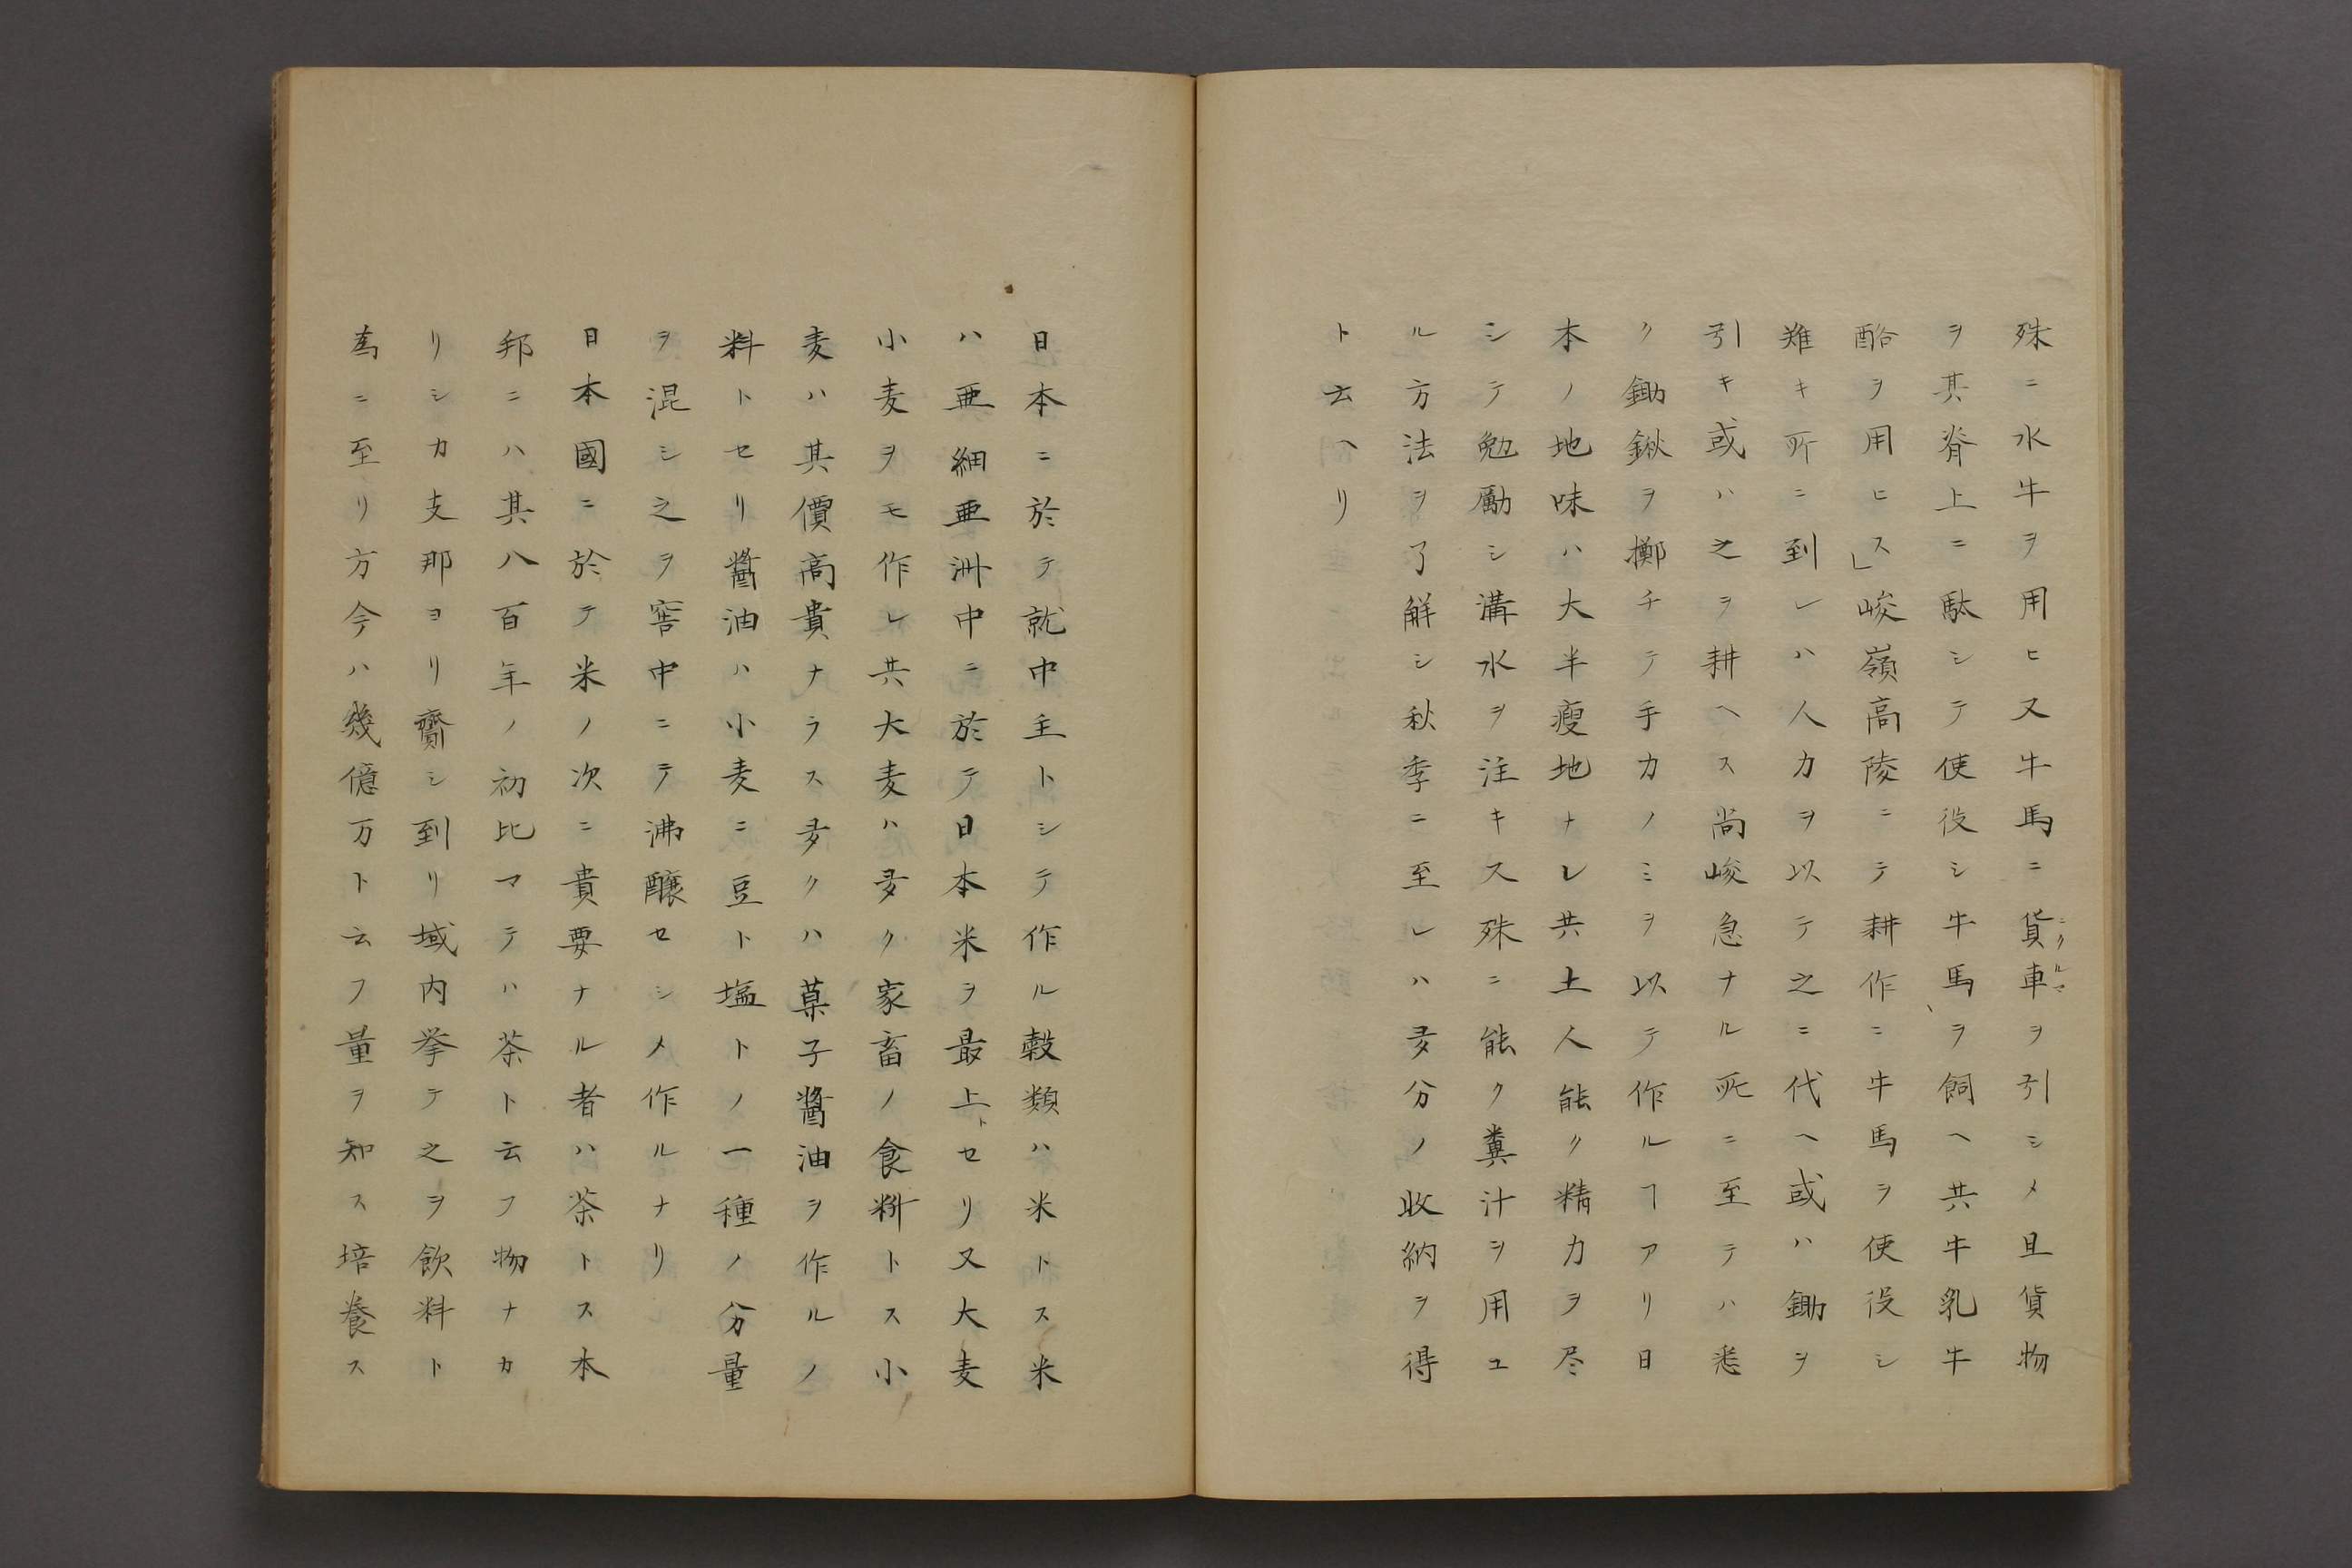 殊ニ水牛ヲ用ヒ又牛馬ニ貨車ヲ引シメ且貨物
ニクルマ
ヲ其脊上ニ駄シテ使役シ牛馬ヲ飼ヘ共牛乳牛
酪ヲ用ヒス」峻嶺高陵ニテ耕作ニ牛馬ヲ使役シ
難キ所ニ到レハ人力ヲ以テ之ニ代ヘ或ハ鋤ヲ
引キ或ハ之ヲ耕ヘス尚峻急ナル所ニ至テハ悉
ク鋤鍬ヲ擲チテ手力ノミヲ以テ作ルヿアリ日
本ノ地味ハ大半瘦地ナレ共土人能ク精力ヲ尽
シテ勉勵シ溝水ヲ注キス殊ニ能ク糞汁ヲ用ユ
ル方法ヲ了解シ秋季ニ至レハ多分ノ收納ヲ得
ト云ヘリ
日本ニ於テ就中主トシテ作ル穀類ハ米トス米
ハ亜細亜洲中ニ於テ日本米ヲ最上トセリ又大麦
小麦ヲモ作レ共大麦ハ多ク家畜ノ食料トス小
麦ハ其價高貴ナラス多クハ菓子醬油ヲ作ルノ
料トセリ醬油ハ小麦ニ豆ト塩トノ一種ノ分量
ヲ混シ之ヲ窖中ニテ沸釀セシメ作ルナリ
日本國ニ於テ米ノ次ニ貴要ナル者ハ茶トス本
邦ニハ其八百年ノ初比マテハ茶ト云フ物ナカ
リシカ支那ヨリ齎シ到リ域内挙テ之ヲ飲料ト
為ニ至リ方今ハ幾億万ト云フ量ヲ知ス培養ス